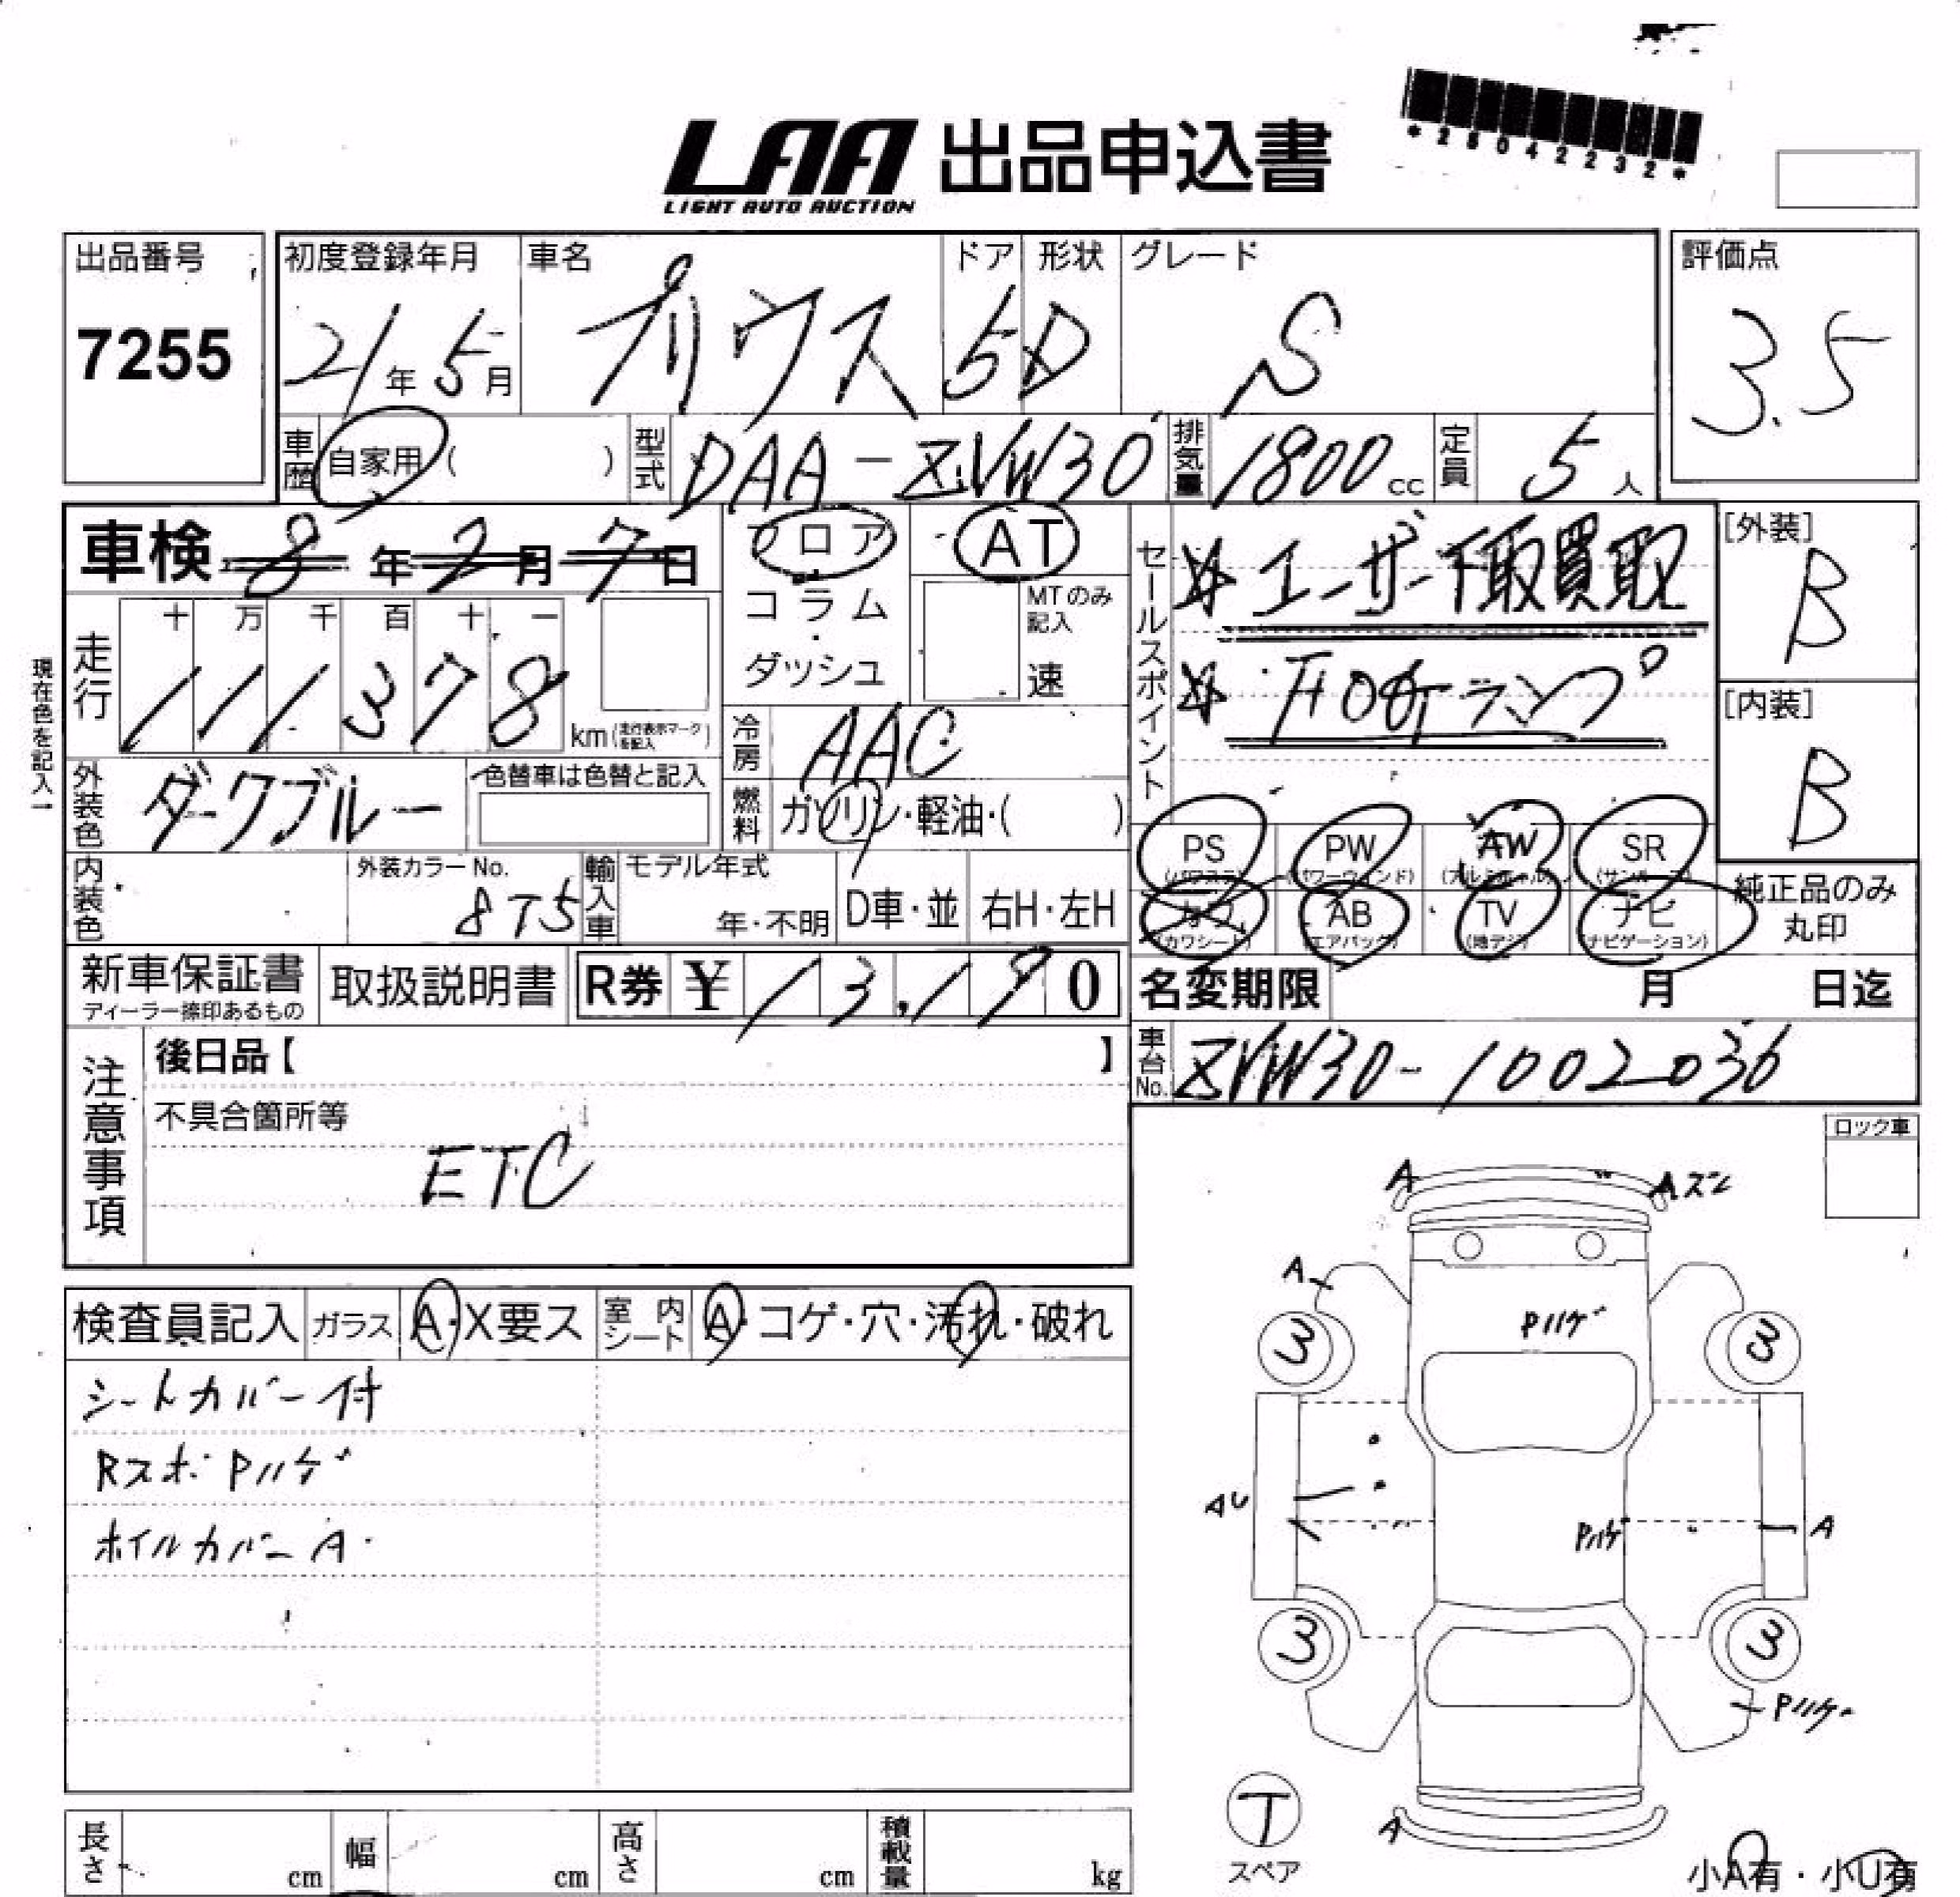 *25042232*
LAA 出品申込書
LIGHT AUTO AUCTION
出品番号 初度登録年月 車名 ドア 形状 グレード 評価点
7255 21年 5月 プリウス 5 D S 3.5
車歴 自家用 ( ) 型式 DAA-ZVW30 排気量 1800cc 定員 5人
車検 8年 2月 7日 フロア AT セールスポイント ☆ユーザー下取買取 [外装] B
コラム・ダッシュ MTのみ記入 速
現在色を記入→
走行 十 万 千 百 十 一
111,378 km (走行表示マークを記入)
☆
[内装] B
冷房 AAC
外装色 ダークブルー 色替車は色替と記入 燃料 ガソリン・軽油・( )
PS (パワステ) PW (パワーウィンド) AW (アルミホイル) SR (サンルーフ)
内装色 外装カラーNo. 8T5 輸入車 モデル年式 年・不明 D車・並 右H・左H
カワ (カワシート) AB (エアバッグ) TV (地デジ) ナビ (ナビゲーション) 純正品のみ丸印
新車保証書 ディーラー捺印あるもの 取扱説明書 R券 ¥ 13,190 名変期限 月 日迄
注意事項 後日品【 】 車台No. ZVW30-1002036
不具合箇所等
ETC
ロック車
A Aズレ
A
検査員記入 ガラス A・X要ス 室内シート A・コゲ・穴・汚れ・破れ
Pハゲ
3 3
シートカバー付
Rスポ Pハゲ
AU Pハゲ A
ホイルカバーA
3 3
Pハゲ
T
スペア
A
長さ cm 幅 cm 高さ cm 積載量 kg
小A有・小U有